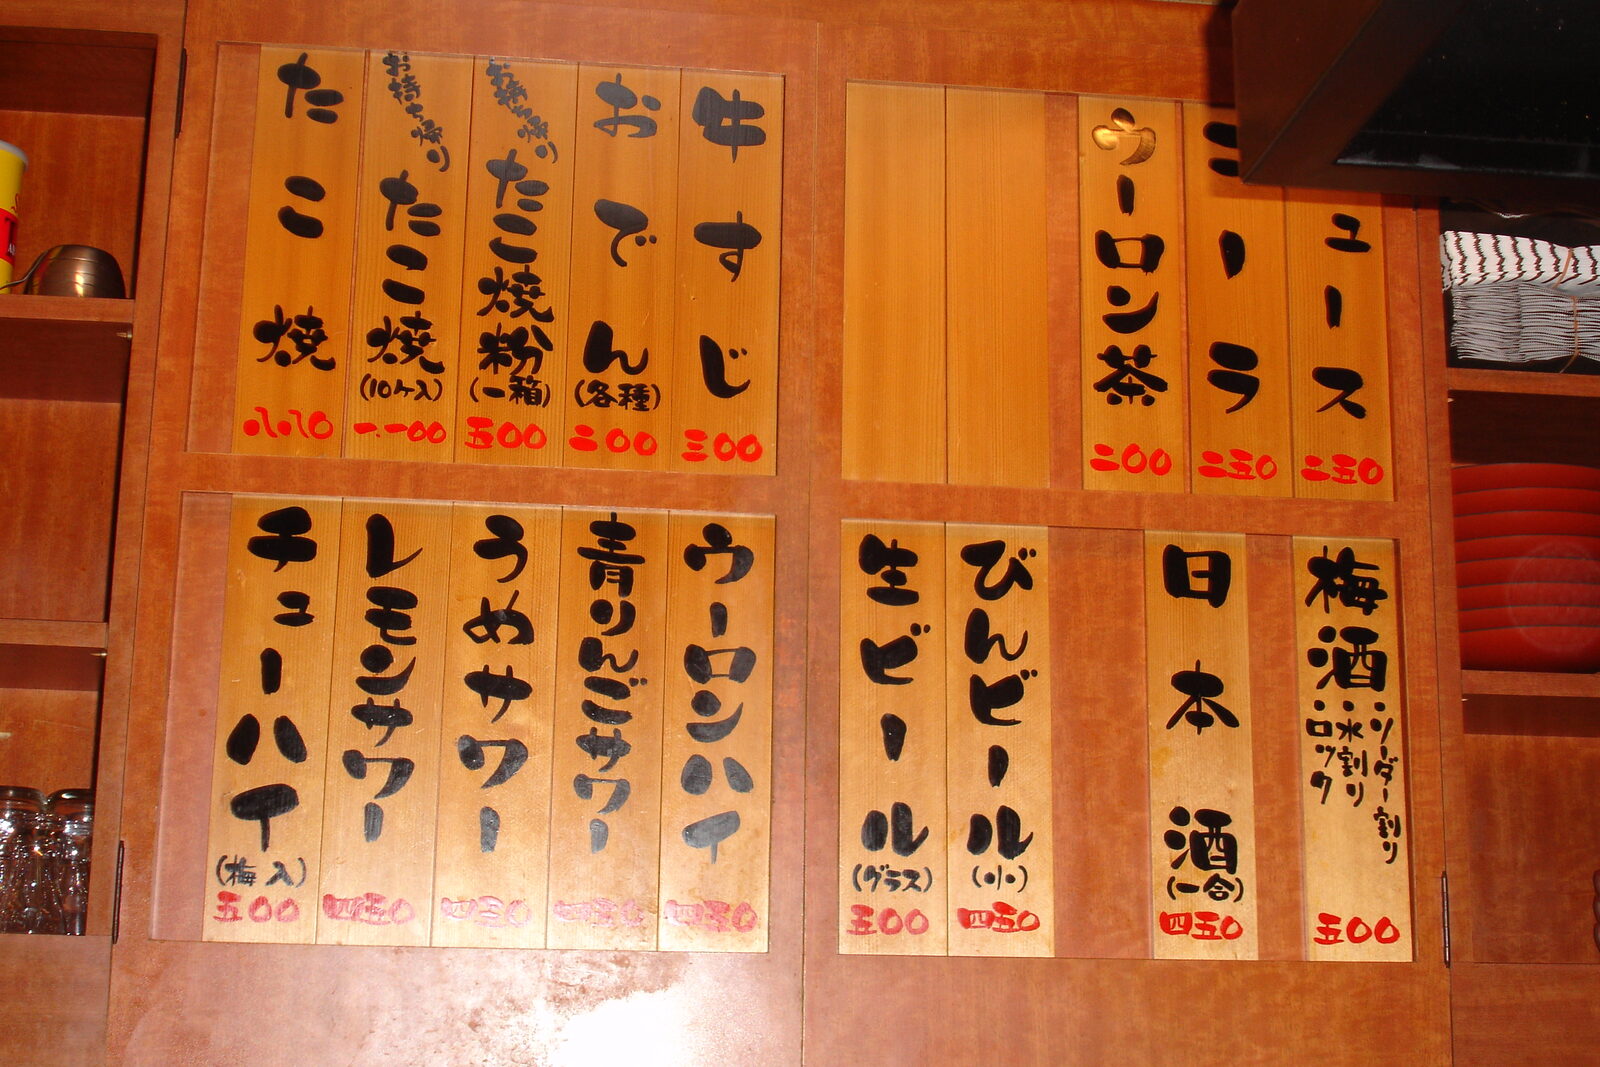 ュース 二五0
コーラ 二五0
ウーロン茶 二00
牛すじ 三00
おでん (各種) 二00
お持ち帰り たこ焼粉 (一箱) 五00
お持ち帰り たこ焼 (10ケ入) 一、一00
たこ焼 八八0
梅酒 ・ソーダー割り
・水割り
・ロック
五00
日本酒 (一合) 四五0
びんビール (小) 四五0
生ビール (グラス) 五00
ウーロンハイ 四五0
青りんごサワー 四五0
うめサワー 四五0
レモンサワー 四五0
チューハイ (梅入) 五00